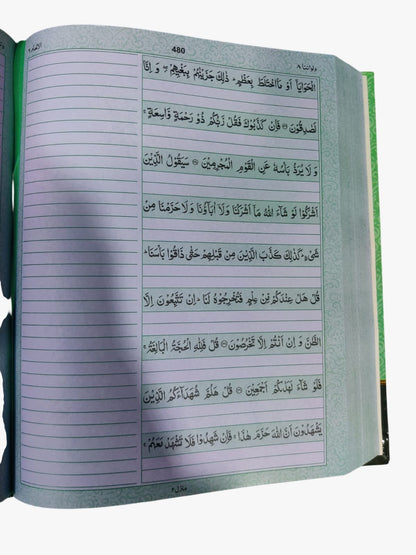 ولو اننا ۸ 480 الانعام ۶
الْحَوَايَآ اَوْ مَا اخْتَلَطَ بِعَظْمٍ ؕ ذٰلِكَ جَزَيْنٰهُمْ بِبَغْيِهِمْ ۖ وَ اِنَّا
لَصٰدِقُوْنَ ﴿﴾ فَاِنْ كَذَّبُوْكَ فَقُلْ رَّبُّكُمْ ذُوْ رَحْمَةٍ وَّاسِعَةٍ ۚ
وَ لَا يُرَدُّ بَاْسُهٗ عَنِ الْقَوْمِ الْمُجْرِمِيْنَ ﴿﴾ سَيَقُوْلُ الَّذِيْنَ
اَشْرَكُوْا لَوْ شَآءَ اللّٰهُ مَآ اَشْرَكْنَا وَ لَآ اٰبَآؤُنَا وَ لَا حَرَّمْنَا مِنْ
شَيْءٍ ؕ كَذٰلِكَ كَذَّبَ الَّذِيْنَ مِنْ قَبْلِهِمْ حَتّٰى ذَاقُوْا بَاْسَنَا ؕ
قُلْ هَلْ عِنْدَكُمْ مِّنْ عِلْمٍ فَتُخْرِجُوْهُ لَنَا ؕ اِنْ تَتَّبِعُوْنَ اِلَّا
الظَّنَّ وَ اِنْ اَنْتُمْ اِلَّا تَخْرُصُوْنَ ﴿﴾ قُلْ فَلِلّٰهِ الْحُجَّةُ الْبَالِغَةُ ۚ
فَلَوْ شَآءَ لَهَدٰىكُمْ اَجْمَعِيْنَ ﴿﴾ قُلْ هَلُمَّ شُهَدَآءَكُمُ الَّذِيْنَ
يَشْهَدُوْنَ اَنَّ اللّٰهَ حَرَّمَ هٰذَا ۚ فَاِنْ شَهِدُوْا فَلَا تَشْهَدْ مَعَهُمْ ۚ
منزل ۲